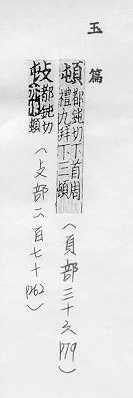 玉篇
頓都鈍切下首周
禮九拜下三頓
(頁部三十六 P79)
都鈍切
亦作頓
(攴部二百七十 P262)